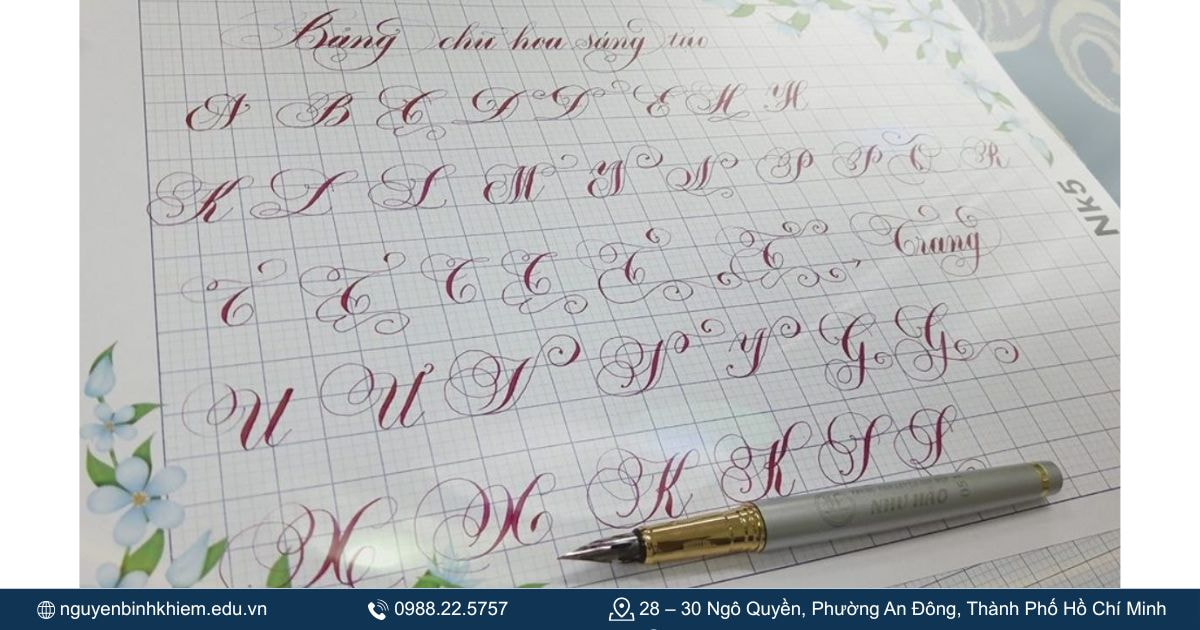 Bảng chữ hoa sáng tạo
A B C D D E H H
K I L M Y N P P C R
C C C C C C Trang
U Ư V P Y G G
X X K K S S
NK5
NHƯ HẢO 050
nguyenbinhkhiem.edu.vn 0988.22.5757 28 – 30 Ngô Quyền, Phường An Đông, Thành Phố Hồ Chí Minh